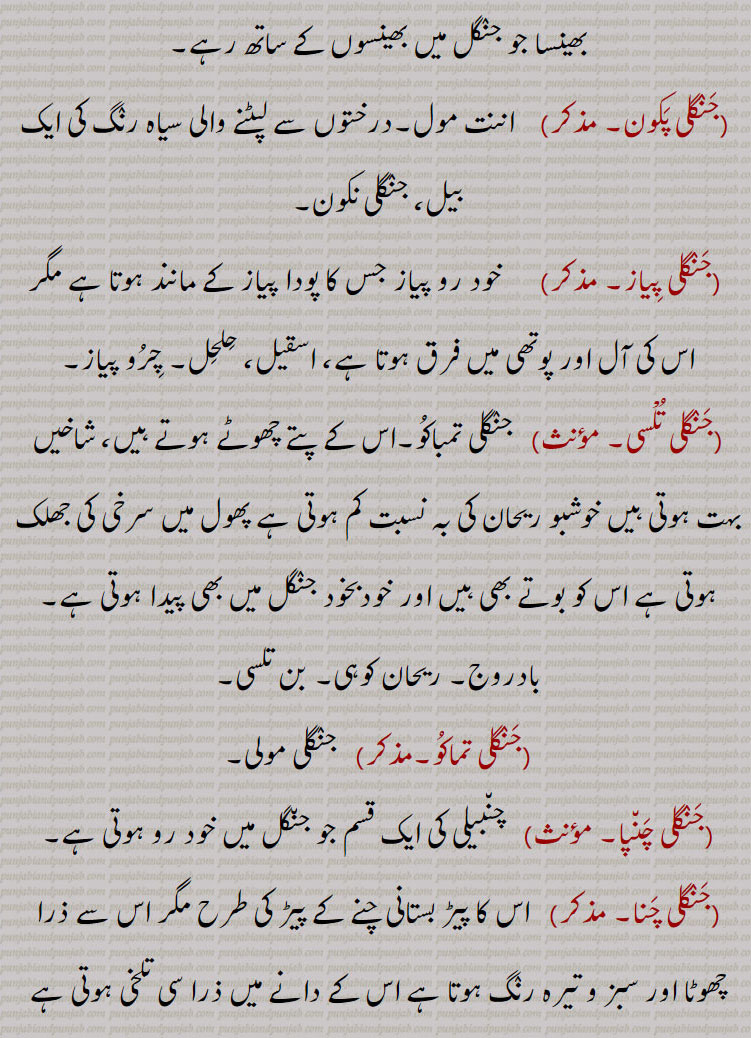 بھینسا جو جنگل میں بھینسوں کے ساتھ رہے۔
(جَنگلی پَکون۔ مذکر) اننت مول۔درختوں سے لپٹنے والی سیاہ رنگ کی ایک
بیل، جنگلی نکون۔
(جَنگلی پِیاز۔ مذکر) خود رو پیاز جس کا پودا پیاز کے مانند ہوتا ہے مگر
اس کی آل اور پوتھی میں فرق ہوتا ہے، اسقیل، حِلحِل۔ چِرُو پیاز۔
(جَنگلی تُلْسی۔ مؤنث) جنگلی تمباکُو۔اس کے پتے چھوٹے ہوتے ہیں، شاخیں
بہت ہوتی ہیں خوشبو ریحان کی بہ نسبت کم ہوتی ہے پھول میں سرخی کی جھلک
ہوتی ہے اس کو بوتے بھی ہیں اور خودبخود جنگل میں بھی پیدا ہوتی ہے۔
بادروج۔ ریحان کوہی۔ بن تلسی۔
(جَنگلی تماکُو۔مذکر) جنگلی مولی۔
(جَنگلی چَنْپا۔ مؤنث) چنْبیلی کی ایک قسم جو جنگل میں خود رو ہوتی ہے۔
(جَنگلی چَنا۔ مذکر) اس کا پیڑ بستانی چنے کے پیڑ کی طرح مگر اس سے ذرا
چھوٹا اور سبز و تیرہ رنگ ہوتا ہے اس کے دانے میں ذرا سی تلخی ہوتی ہے